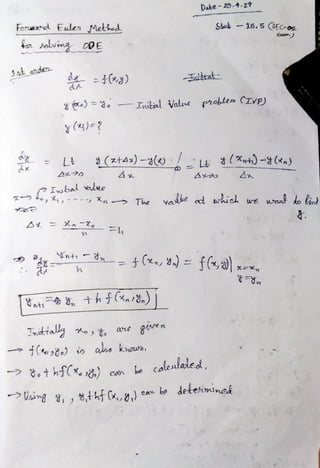 Date - 25.4.29
Forward Euler Method
for solving ODE
Slot - 15.5 (SEC-02
1st order
dy/dx = f(x,y)
y(x₀) = y₀ — Initial Value problem (IVP)
y(x₁) = ?
dy/dx = Lt Δx→0 y(x+Δx)-y(x) / Δx = Lt Δx→0 y(xₙ₊₁)-y(xₙ) / Δx
Initial value
x → x₀, x₁, ----, xₙ → The value at which we want to find y.
Δx = xₙ-x₀ / n = h
⇒ dy/dx = yₙ₊₁ - yₙ / h = f(xₙ, yₙ) = f(x,y)| x=xₙ y=yₙ
yₙ₊₁ = yₙ + h f(xₙ, yₙ)
Initially x₀, y₀ are given
→ f(x₀,y₀) is also known.
→ y₀ + hf(x₀,y₀) can be calculated.
→ Using y₁, y₁+hf(x₁,y₁) can be determined